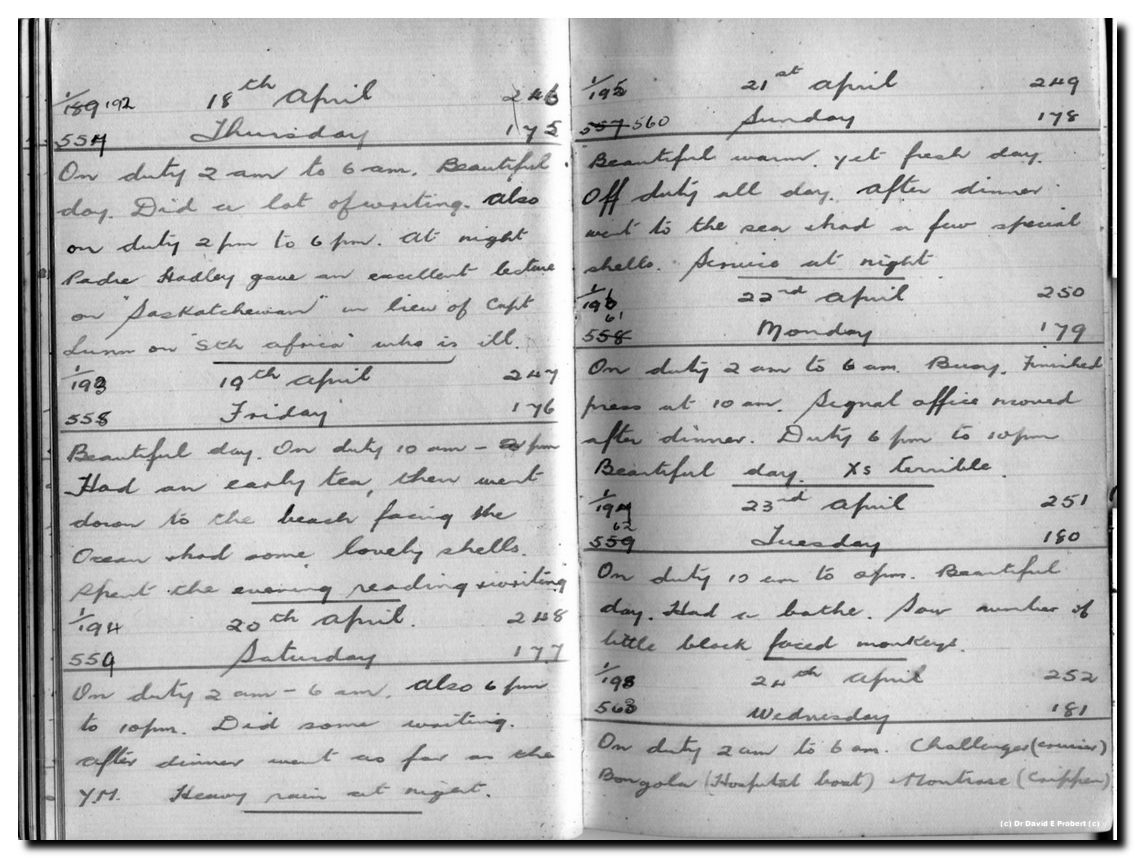 1/189 192 18th April 246
554 Thursday 175
On duty 2 am to 6 am. Beautiful
day. Did a lot of writing. Also
on duty 2 pm to 6 pm. At night
Padre Hadley gave an excellent lecture
on "Saskatchewan" in lieu of Capt
Lunn on "Sth Africa" who is ill.
1/193 19th April 247
558 Friday 176
Beautiful day. On duty 10 am - pm
Had an early tea, then went
down to the beach facing the
Ocean & had some lovely shells.
Spent the evening reading & writing
1/194 20th April. 248
559 Saturday 177
On duty 2 am - 6 am. Also 6 pm
to 10 pm. Did some writing.
After dinner went as far as the
Y.M. Heavy rain at night.
1/195 21st April 249
557 560 Sunday 178
Beautiful warm, yet fresh day.
Off duty all day. After dinner
went to the sea & had a few special
shells. Service at night
1/196 22nd April 250
61
558 Monday 179
On duty 2 am to 6 am. Busy. Finished
press at 10 am. Signal office moved
after dinner. Duty 6 pm to 10 pm
Beautiful day. Xs terrible.
1/197 23rd April 251
62
559 Tuesday 180
On duty 10 am to 2 pm. Beautiful
day. Had a bathe. Saw number of
little black faced monkeys.
1/198 24th April 252
563 Wednesday 181
On duty 2 am to 6 am. Challenger (cruiser)
Bongola (Hospital boat) & Montrose (Crippen)
(c) Dr David E Probert (c)